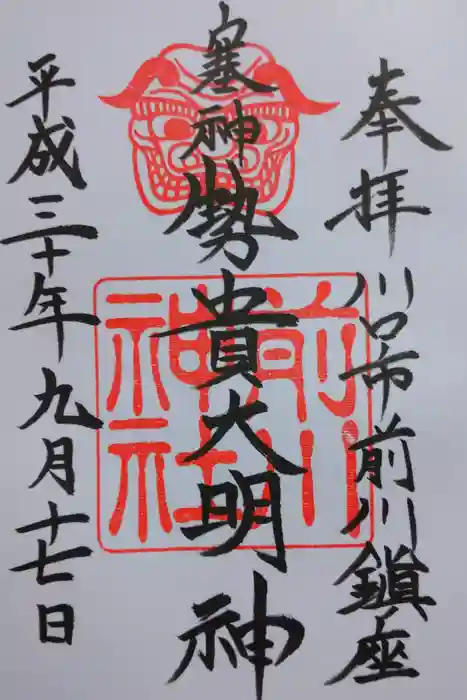 奉拝
川口市前川鎮座
塞神勢貴大明神
平成三十年九月十七日
前川神社